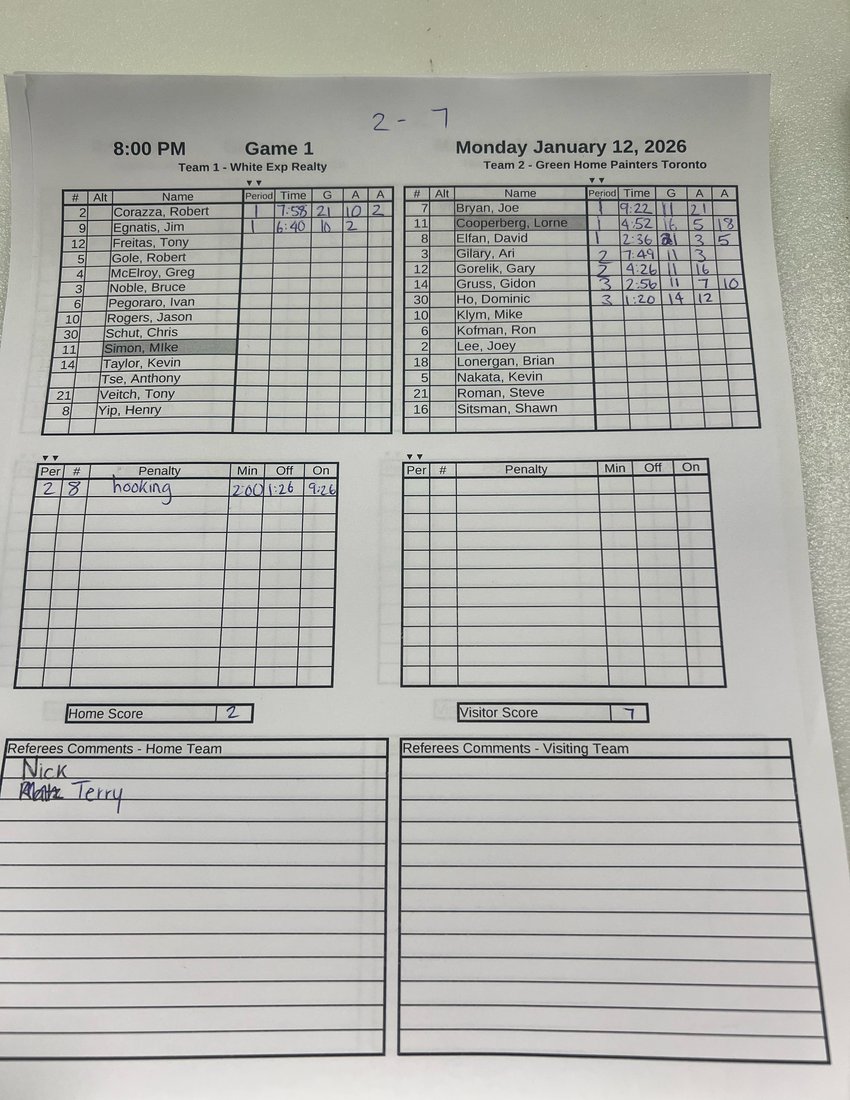 2 - 7
8:00 PM Game 1 Monday January 12, 2026
Team 1 - White Exp Realty Team 2 - Green Home Painters Toronto
# Alt Name Period Time G A A
2 Corazza, Robert 1 7:58 21 10 2
9 Egnatis, Jim 1 6:40 10 2
12 Freitas, Tony
5 Gole, Robert
4 McElroy, Greg
3 Noble, Bruce
6 Pegoraro, Ivan
10 Rogers, Jason
30 Schut, Chris
11 Simon, MIke
14 Taylor, Kevin
Tse, Anthony
21 Veitch, Tony
8 Yip, Henry
# Alt Name Period Time G A A
7 Bryan, Joe 1 9:22 11 21
11 Cooperberg, Lorne 1 4:52 16 5 18
8 Elfan, David 1 2:36 21 3 5
3 Gilary, Ari 2 7:49 11 3
12 Gorelik, Gary 2 4:26 11 16
14 Gruss, Gidon 3 2:56 11 7 10
30 Ho, Dominic 3 1:20 14 12
10 Klym, Mike
6 Kofman, Ron
2 Lee, Joey
18 Lonergan, Brian
5 Nakata, Kevin
21 Roman, Steve
16 Sitsman, Shawn
Per # Penalty Min Off On
2 8 hooking 2:00 1:26 9:26
Per # Penalty Min Off On
Home Score 2
Visitor Score 7
Referees Comments - Home Team
Nick
Terry
Referees Comments - Visiting Team